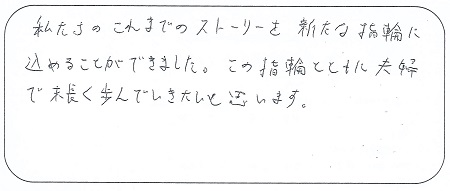 私たちのこれまでのストーリーを 新たな指輪に
込めることができました。この指輪とともに夫婦
で末長く歩んでいきたいと思います。